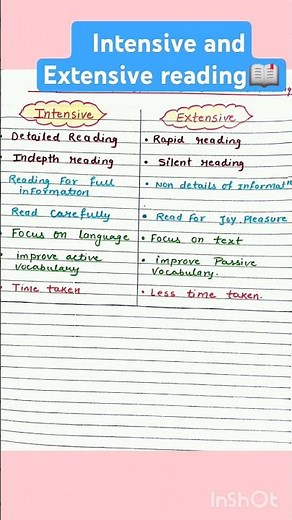 Intensive and
Extensive reading📖
Intensive
Extensive
• Detailed Reading
• Rapid reading
• Indepth reading
• Silent reading
Reading For full
information
• Non details of Informatn
Read Carefully
• Read For Joy, Pleasure
• Focus on language
• Focus on text
• improve active
vocabulary
• improve Passive
vocabulary.
• Time taken
• Less time taken.
InShOt